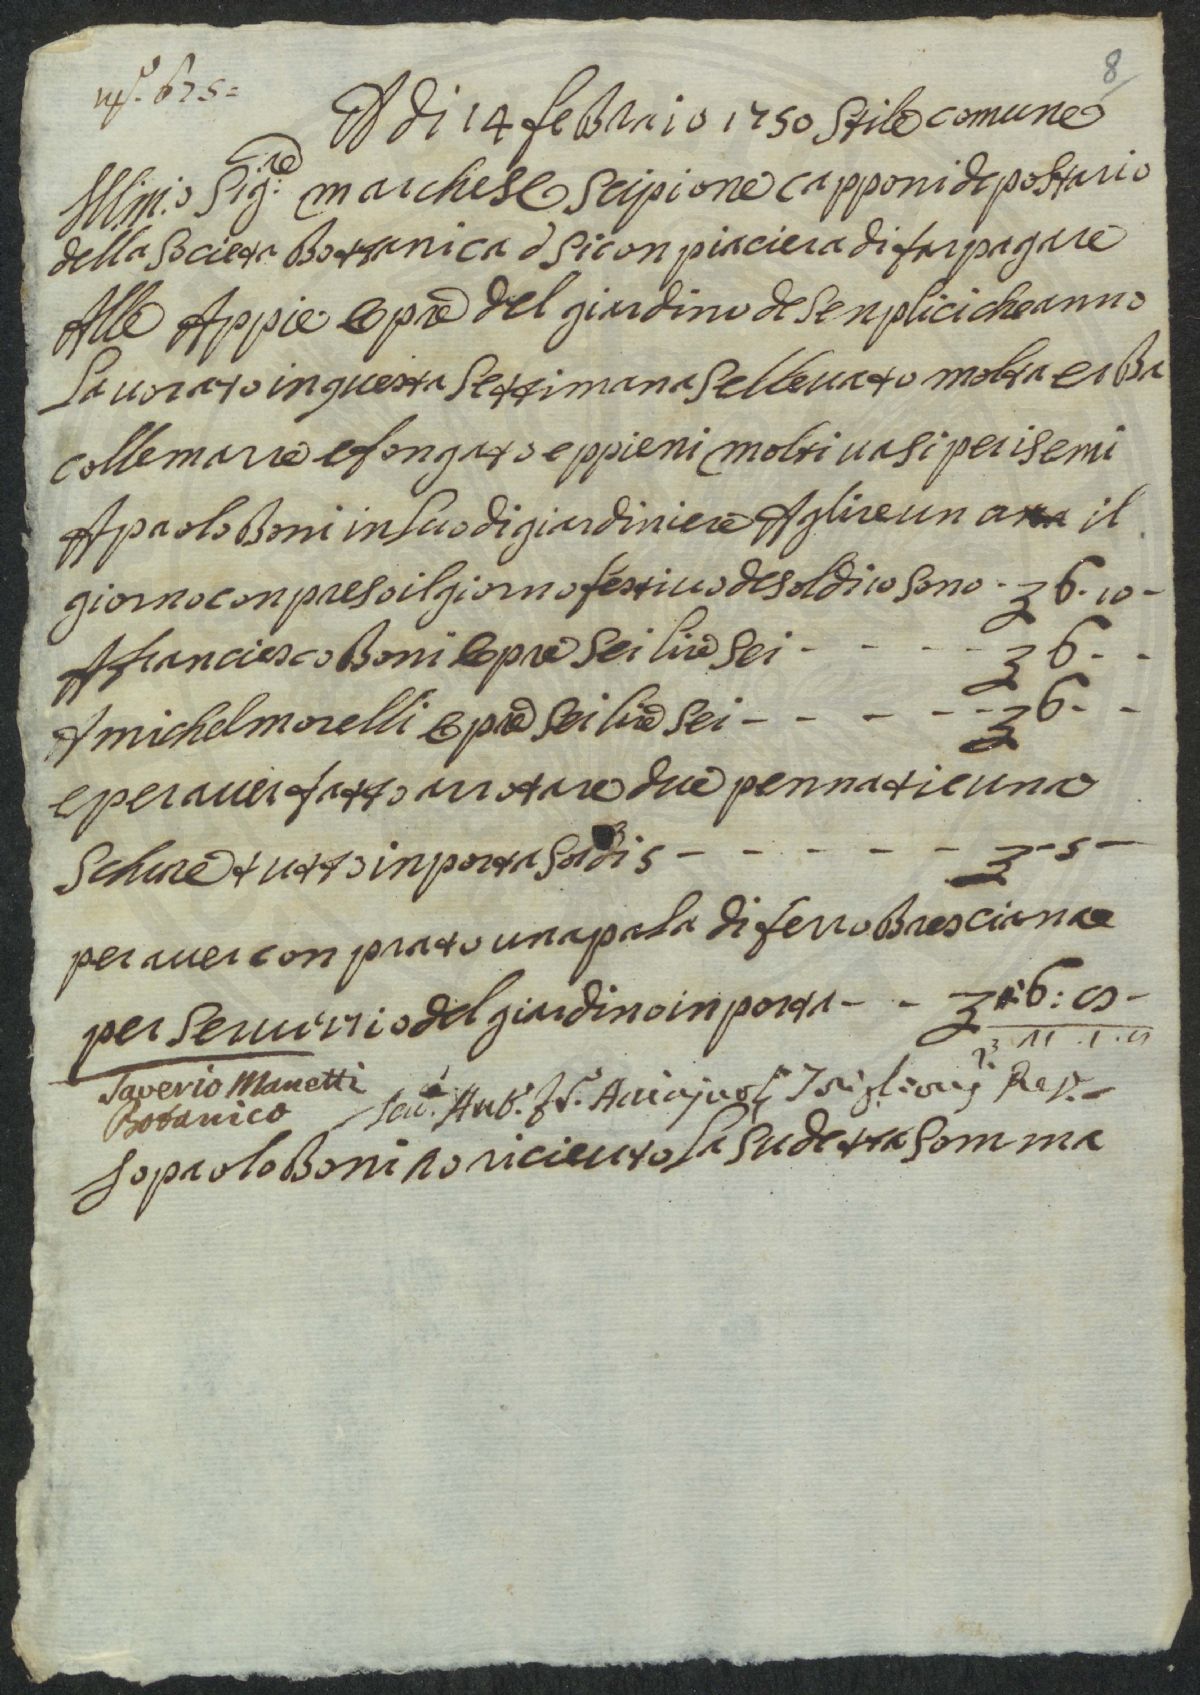 8
n.º 675=
A di 14 febraio 1750 Stile comune
Ill.mo Sig:re marchese Scipione capponi depostario
della Societa Bottanica Si conpiaciera di far pagare
Alle Appie opre del giardino de senplici che anno
Lauorato in questa Settimana Selleuato molta erba
colle marre e fongato e ppieni molti uasi per i semi
A paolo Boni in Luo di giardiniere A glire un il
giorno conpreso il giorno festiuo de soldi 10 sono - 6. 10 -
A franciesco Boni opre sei lire sei - - - - - 6 - -
A michel morelli opre sei lire sei - - - - - 6 - -
e per auer fatto arrotare due pennati e una
Schure tutto inporta soldi 5 - - - - - - - 5 -
per auer conprato una pala di ferro Bresciana
per seruizio del giardino inporta - - 6:
Saverio Manetti
Botanico
Io paolo Boni o riceuto La sudetta somma